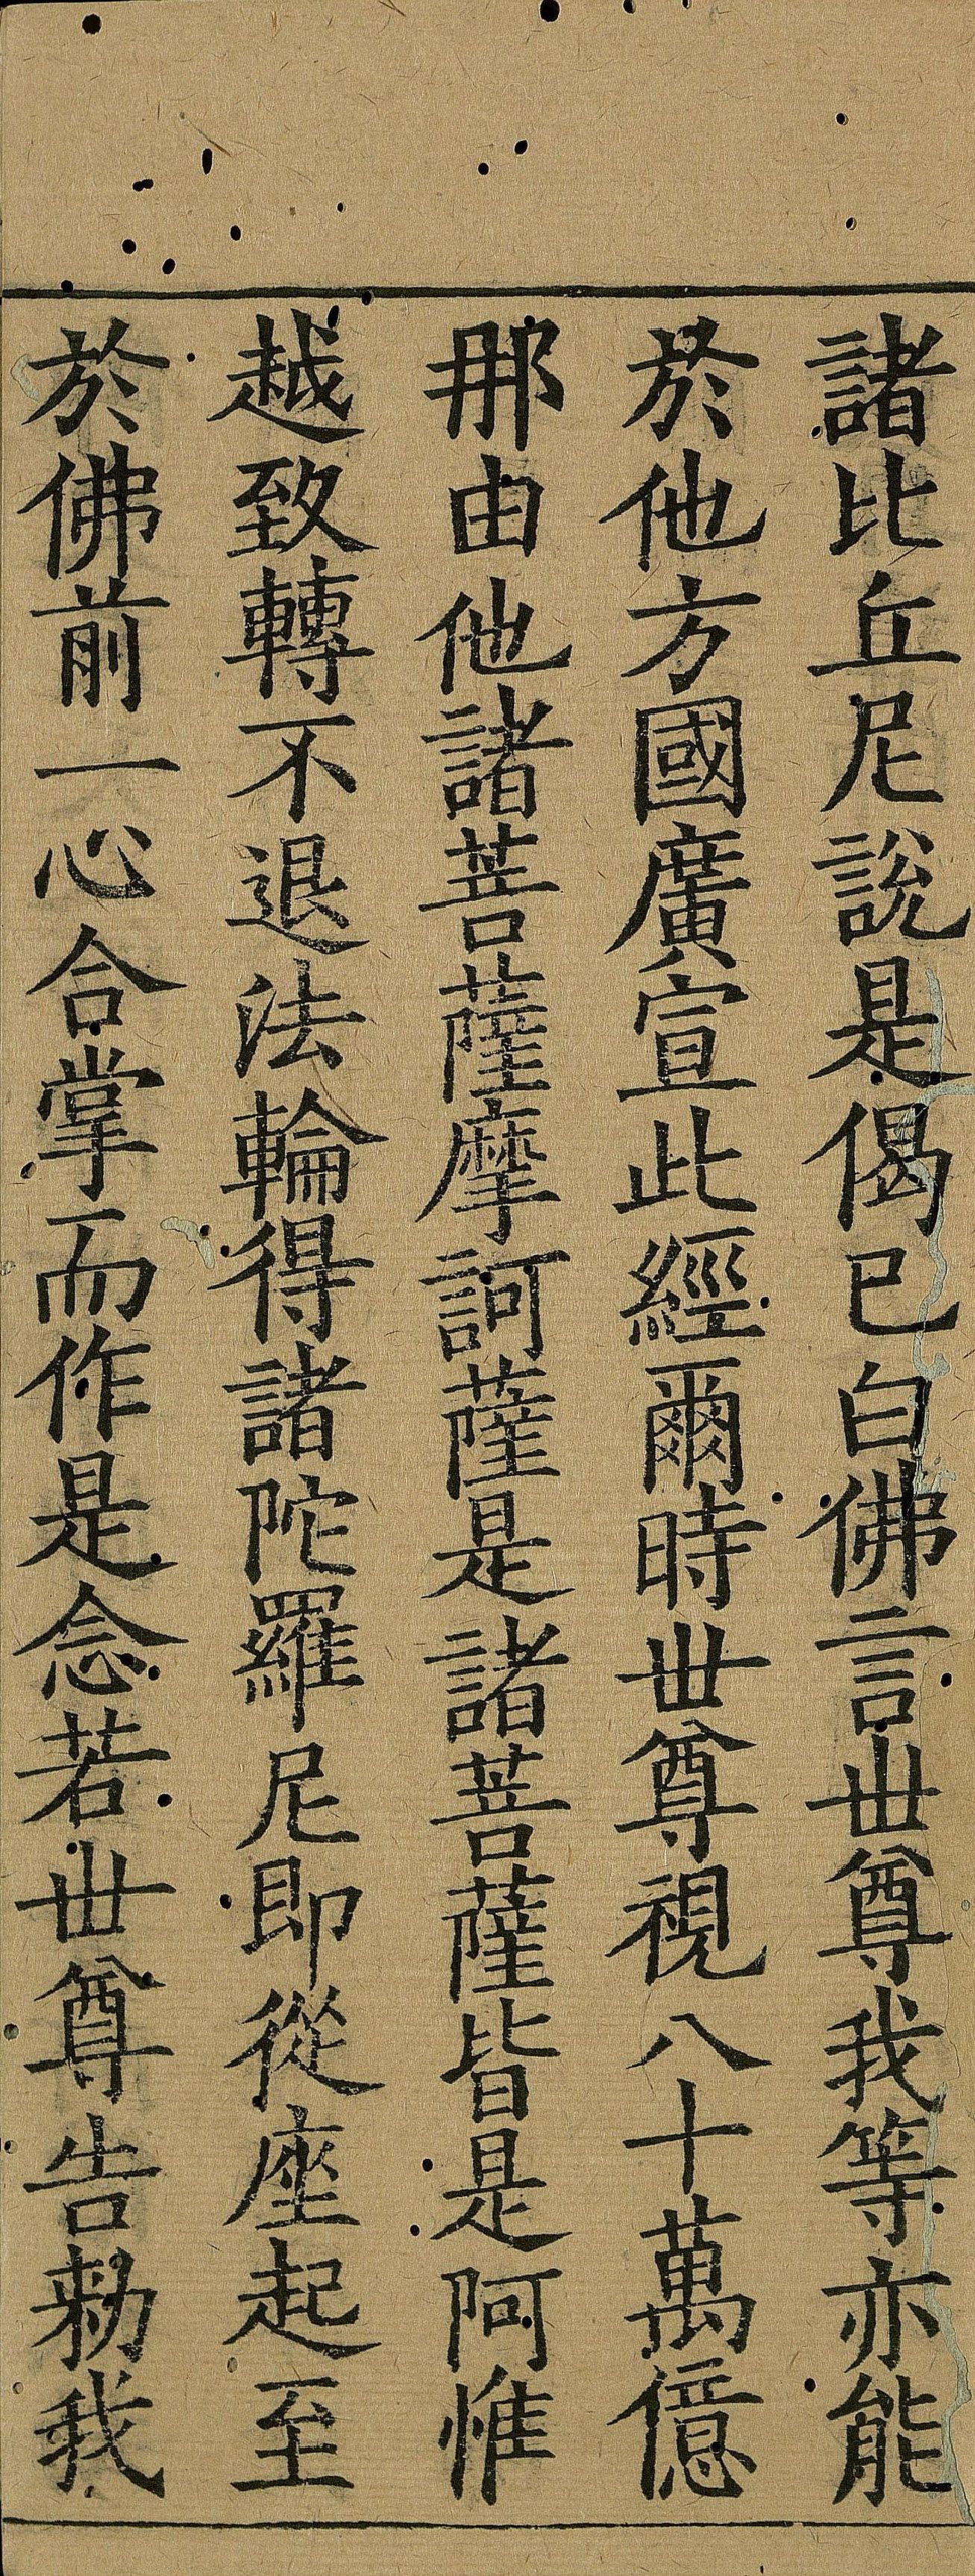 諸比丘尼說是偈已白佛言世尊我等亦能
於他方國廣宣此經爾時世尊視八十萬億
那由他諸菩薩摩訶薩是諸菩薩皆是阿惟
越致轉不退法輪得諸陀羅尼即從座起至
於佛前一心合掌而作是念若世尊告勑我